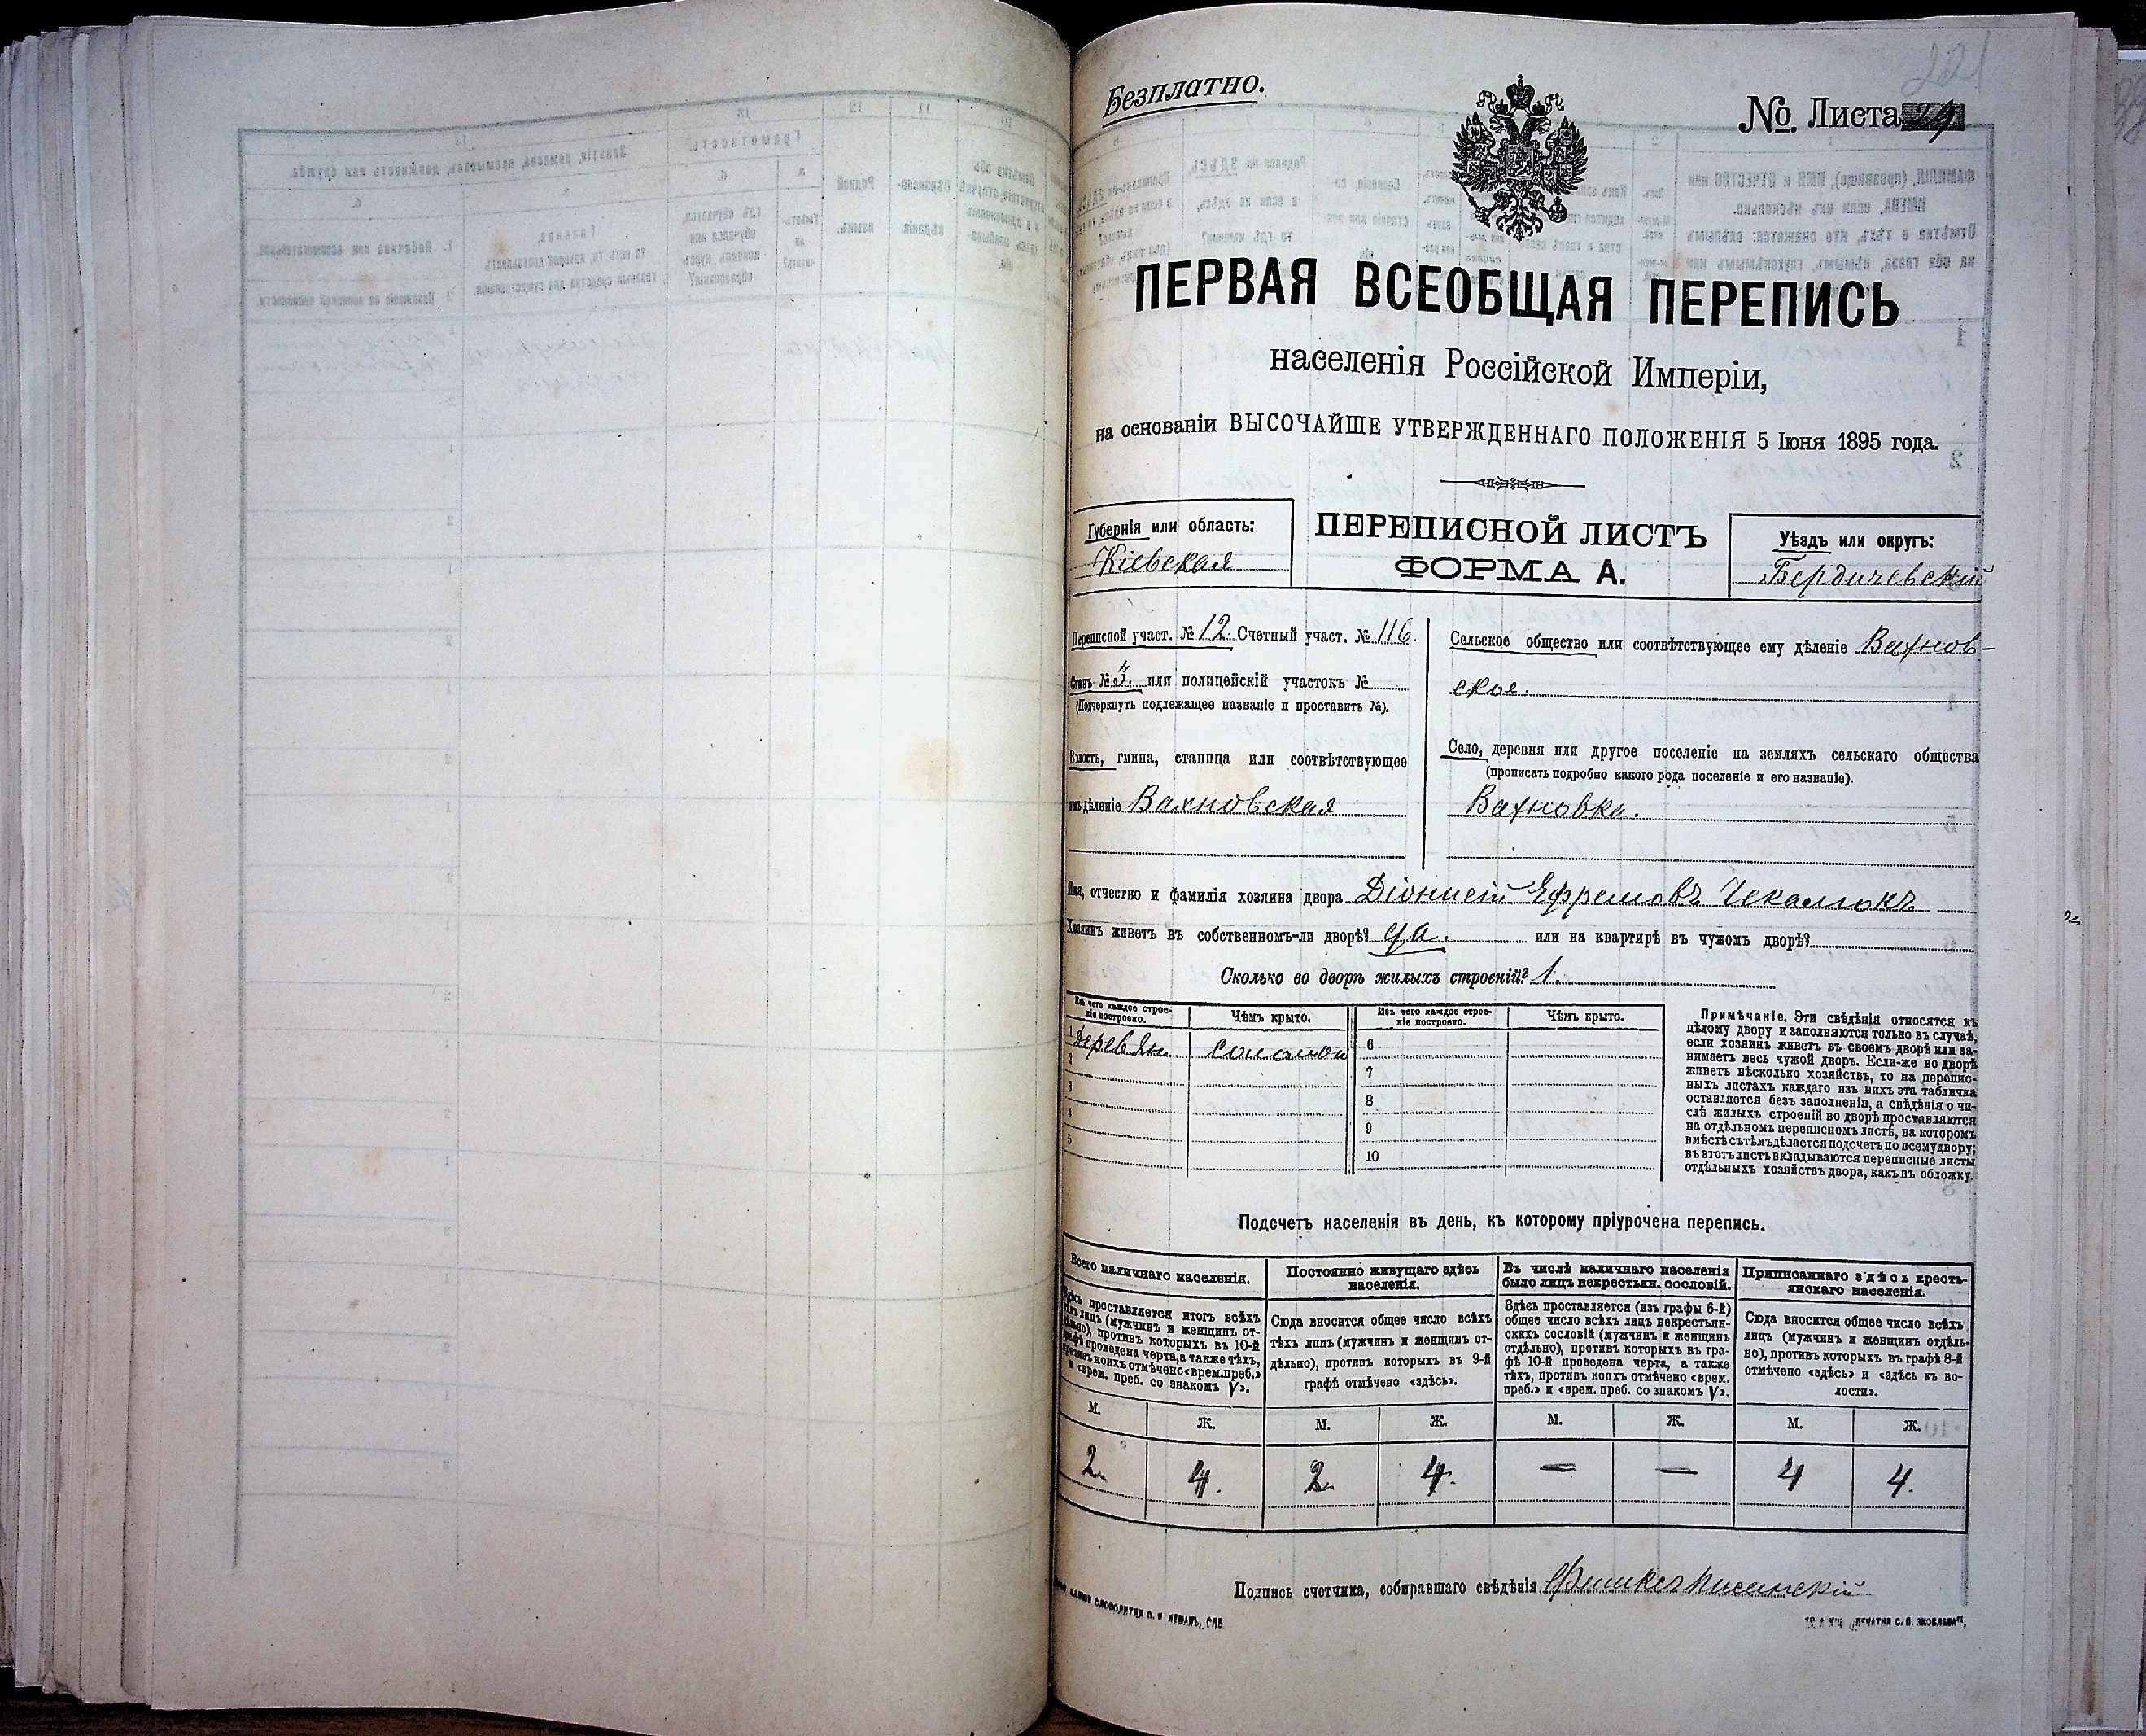 Безплатно.
№ Листа 29
221
ПЕРВАЯ ВСЕОБЩАЯ ПЕРЕПИСЬ
населенія Россійской Имперіи,
на основаніи ВЫСОЧАЙШЕ УТВЕРЖДЕННАГО ПОЛОЖЕНІЯ 5 Іюня 1895 года.
Губернія или область:
Кіевская
ПЕРЕПИСНОЙ ЛИСТЪ
ФОРМА А.
Уѣздъ или округъ:
Бердичевскій
Переписной участ. № 12. Счетный участ. № 116.
Станъ № или полицейскій участокъ №
(Подчеркнуть подлежащее названіе и проставить №).
Волость, гмина, станица или соотвѣтствующее
имъ дѣленіе Вахновская
Сельское общество или соотвѣтствующее ему дѣленіе Вахнов-
ское.
Село, деревня или другое поселеніе на земляхъ сельскаго общества
(прописать подробно какого рода поселеніе и его названіе).
Вахновка.
Имя, отчество и фамилія хозяина двора Діонисій Ефремовъ Чекалюкъ
Хозяинъ живетъ въ собственномъ-ли дворѣ? да. или на квартирѣ въ чужомъ дворѣ?
Сколько во дворѣ жилыхъ строеній? 1.
Изъ чего каждое строе-
ніе построено.
Чѣмъ крыто.
Изъ чего каждое строе-
ніе построено.
Чѣмъ крыто.
1 деревян соломой 6
2 7
3 8
4 9
5 10
Примѣчаніе. Эти свѣдѣнія относятся къ
цѣлому двору и заполняются только въ случаѣ,
если хозяинъ живетъ въ своемъ дворѣ или за-
нимаетъ весь чужой дворъ. Если-же во дворѣ
живетъ нѣсколько хозяйствъ, то на перепис-
ныхъ листахъ каждаго изъ нихъ эта табличка
оставляется безъ заполненія, а свѣдѣнія о чи-
слѣ жилыхъ строеній во дворѣ проставляются
на отдѣльномъ переписномъ листѣ, на которомъ
вмѣстѣ съ тѣмъ дѣлается подсчетъ по всему двору;
въ этотъ листъ вкладываются переписные листы
отдѣльныхъ хозяйствъ двора, какъ въ обложку.
Подсчетъ населенія въ день, къ которому пріурочена перепись.
Всего наличнаго населенія.
Здѣсь проставляется итогъ всѣхъ
тѣхъ лицъ (мужчинъ и женщинъ от-
дѣльно), противъ которыхъ въ 10-й
графѣ проведена черта, а также тѣхъ,
противъ коихъ отмѣчено «врем.преб.»
и «врем. преб. со знакомъ V».
Постоянно живущаго здѣсь
населенія.
Сюда вносится общее число всѣхъ
тѣхъ лицъ (мужчинъ и женщинъ от-
дѣльно), противъ которыхъ въ 9-й
графѣ отмѣчено «здѣсь».
Въ числѣ наличнаго населенія
было лицъ некрестьян. сословій.
Здѣсь проставляется (изъ графы 6-й)
общее число всѣхъ лицъ некрестьян-
скихъ сословій (мужчинъ и женщинъ
отдѣльно), противъ которыхъ въ гра-
фѣ 10-й проведена черта, а также
тѣхъ, противъ коихъ отмѣчено «врем.
преб.» и «врем. преб. со знакомъ V».
Приписаннаго здѣсь кресть-
янскаго населенія.
Сюда вносится общее число всѣхъ
лицъ (мужчинъ и женщинъ отдѣль-
но), противъ которыхъ въ графѣ 8-й
отмѣчено «здѣсь» и «здѣсь къ во-
лости».
М. Ж. М. Ж. М. Ж. М. Ж.
2. 4. 2. 4. — — 4 4.
Подпись счетчика, собиравшаго свѣдѣнія